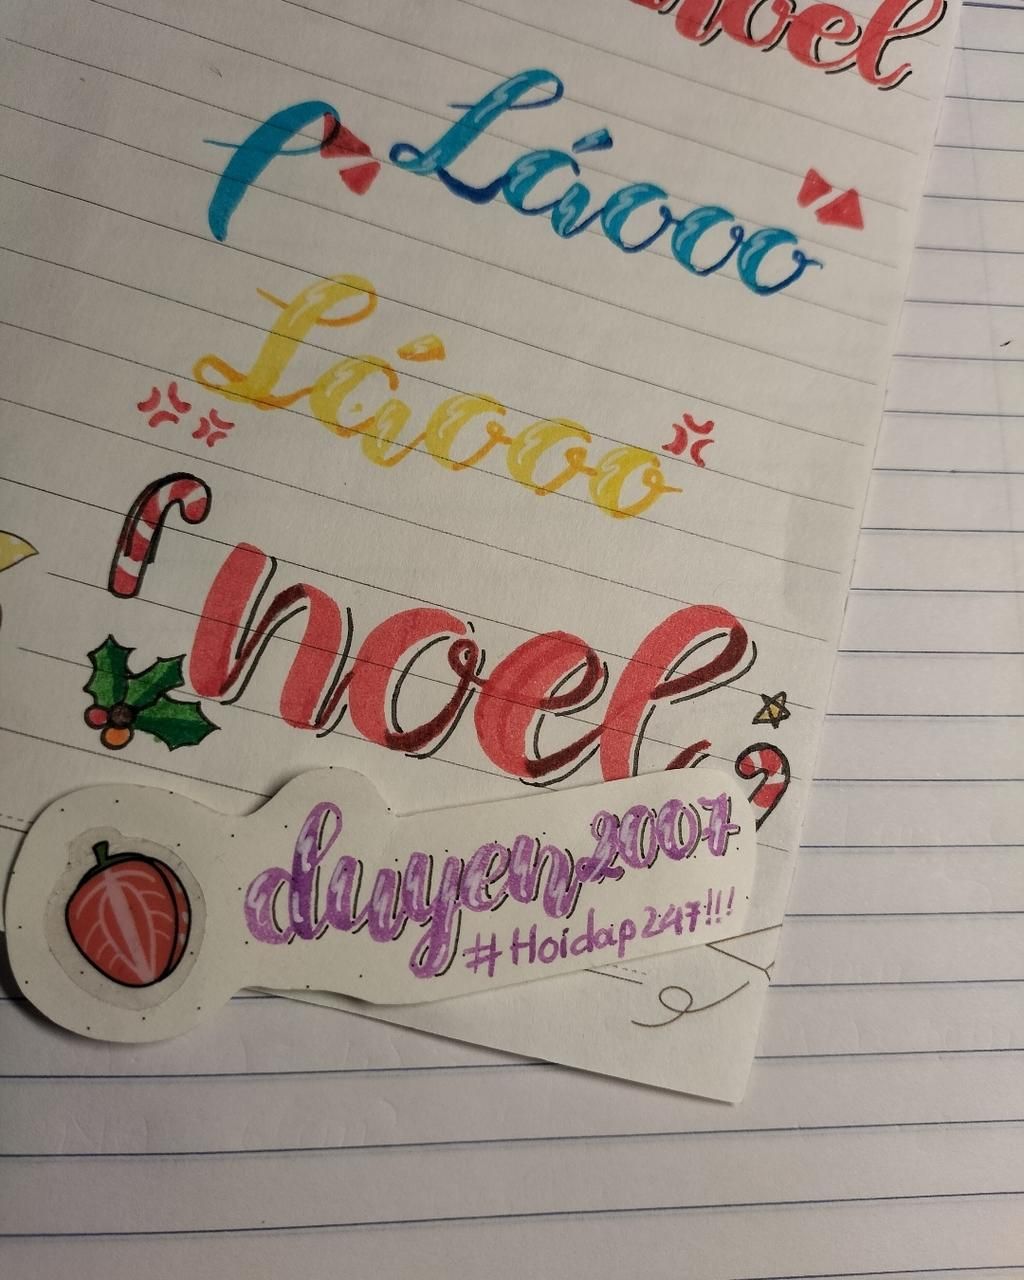 noel
Láooo
Láooo
noel
duyen2007
#Hoidap247!!!